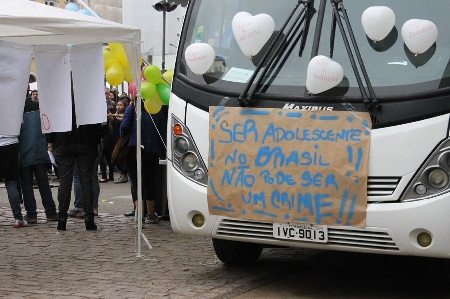 MAXIBUS
SER ADOLESCENTE
NO BRASIL
NÃO PODE SER
UM CRIME!!
IVC-9013